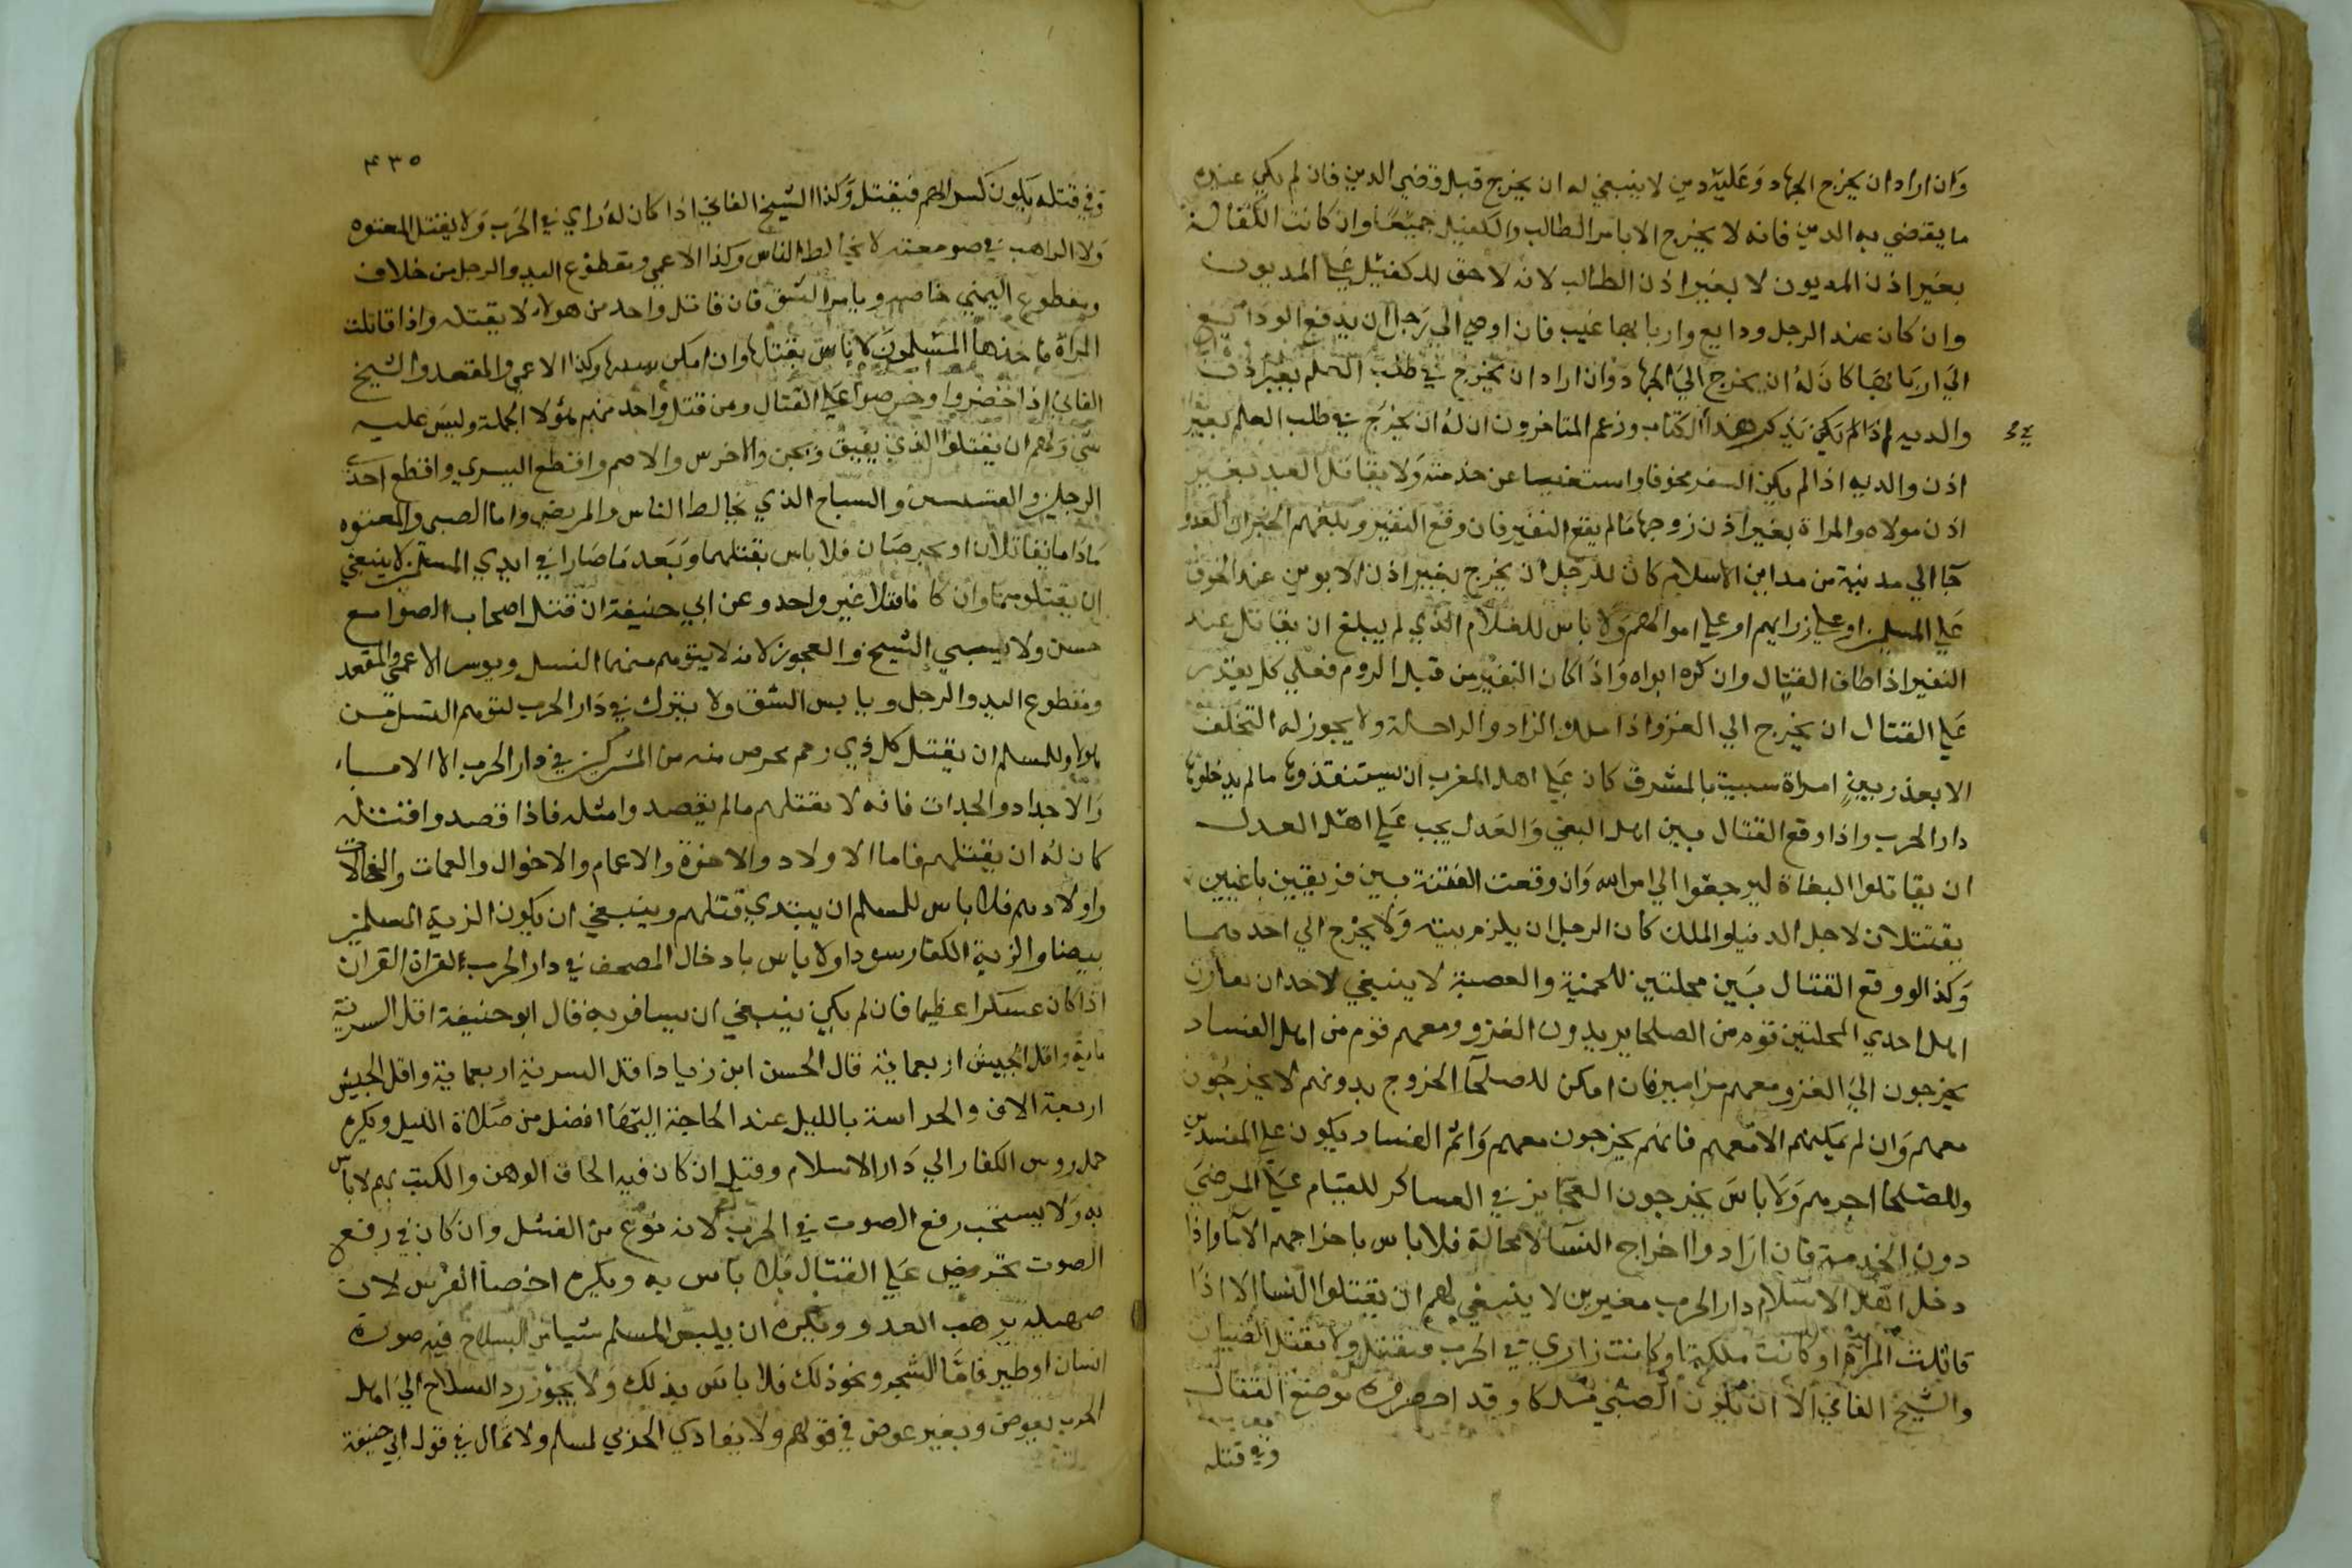 وان اراد ان يخرج الجهاد وعليه دين لا ينبغي له ان يخرج قبل قضي الدين فان لم يكن عنده
ما يقضي به الدين فانه لا يخرج الا بامر الطالب والكفيل جميعا وان كانت الكفالة
بغير اذن المديون لا بغير اذن الطالب لانه لا حق للكفيل على المديون
وان كان عند الرجل ودايع واربابها غيب فان اوصي الي رجل ان يدفع الودايع
الي اربابها كان له ان يخرج الي الجهاد وان اراد ان يخرج في طلب العلم بغير اذن
والديه لم يذكر هذا الكتاب وزعم المتاخرون ان له ان يخرج في طلب العلم بغير
اذن والديه اذا لم يكن السفر مخوفا واستغنيا عن خدمته ولا يقاتل العبد بغير
اذن مولاه والمراة بغير اذن زوجها ما لم يقع النفير فان وقع النفير وبلغهم الخبر ان العدو
جا الي مدينة من مداين الاسلام كان للرجل ان يخرج بغير اذن الابوين عند الخوف
علي المسلمين او علي ذراريهم او علي اموالهم ولا باس للغلام الذي لم يبلغ ان يقاتل عند
النفير اذا طاق القتال وان كره ابواه واذا كان النفير من قبل الروم فعلي كل يقدر
علي القتال ان يخرج الي الغزو اذا ملك الزاد والراحلة ولا يجوز له التخلف
الا بعذر بين امراة سبيت بالمشرق كان علي اهل المغرب ان يستنقذوها ما لم يدخلوها
دار الحرب واذا وقع القتال بين اهل البغي والعدل يجب علي اهل العدل
ان يقاتلوا البغاة ليرجعوا الي امر الله وان وقعت الفتنة بين فريقين باغيين
يقتتلان لاجل الدنيا والملك كان الرجل ان يلزم بيته ولا يخرج الي احدهما
وكذا لو وقع القتال بين محلتين للحمية والعصبة لا ينبغي لاحد ان يعاون
اهل احدي المحلتين قوم من الصلحا يريدون الغزو ومعهم قوم من اهل الفساد
يخرجون الي الغزو معهم مزامير فان امكن للصلحا الخروج بدونهم لا يخرجون
معهم وان لم يمكنهم الا معهم فانهم يخرجون معهم واثم الفساد يكون علي المفسدين
وللصلحا اجرهم ولا باس يخرجون العجايز في العساكر للقيام علي المرضي
دون الخدمة فان ارادوا اخراج النسا لا محالة فلا باس باخراجهم الاما واذا
دخل اهل الاسلام دار الحرب مغيرين لا ينبغي لهم ان يقتلوا النسا الا اذا
قاتلت المراة او كانت ملكة او كانت ذا راي في الحرب فتقتل ولا يقتل الصبيان
والشيخ الفاني الا ان يكون الصبي ملكا وقد احضروه موضع القتال
وفي قتله
٤٣٥
وفي قتله يكون كسر لهم فيقتل وكذا الشيخ الفاني اذا كان له راي في الحرب ولا يقتل المعتوه
ولا الراهب في صومعته لا يخالط الناس وكذا الاعمي ومقطوع اليد والرجل من خلاف
ومقطوع اليمني خاصة ويابس الشق فان قاتل واحد من هولا لا يقتله واذا قاتلت
المراة فاخذها المسلمون لا باس بقتلها وان امكن سبيها وكذا الاعمي والمقعد والشيخ
الفاني اذا حضروا وحرصوا علي القتال ومن قتل واحد منهم هولا الجملة وليس عليه
شي ولهم ان يقتلوا الذي يفيق ويجن والاخرس والاصم واقطع اليسري واقطع احدي
الرجلين والقسيسين والسياح الذي يخالط الناس والمريض واما الصبي والمعتوه
ما داما يقاتلان او يحرصان فلا باس بقتلهما وبعد ما صارا في ايدي المسلمين لا ينبغي
ان يقتلوهما وان كانا قتلا غير واحد وعن ابي حنيفة ان قتل اصحاب الصوامع
حسن ولا يسبي الشيخ والعجوز لانه لا يتوهم منهما النسل ويوسر الاعمي والمقعد
ومقطوع اليد والرجل ويابس الشق ولا يترك في دار الحرب لتوهم النسل من
هولا وللمسلم ان يقتل كل ذي رحم محرم منه من المشركين في دار الحرب الا الابا
والاجداد والجدات فانه لا يقتلهم ما لم يقصدوا مثله فاذا قصدوا قتله
كان له ان يقتلهم فاما الاولاد والاخوة والاعمام والاخوال والعمات والخالات
واولادهم فلا باس للمسلم ان يبتدي قتلهم وينبغي ان يكون الزية المسلمين
بيضا والزية الكفار سودا ولا باس بادخال المصحف في دار الحرب لقراة القران
اذا كان عسكرا عظيما فان لم يكن ينبغي ان يسافر به فقال ابو حنيفة اقل السرية
ماية واقل الجيش اربعماية قال الحسن ابن زياد اقل السرية اربعماية واقل الجيش
اربعة الاف والحراسة بالليل عند الحاجة اليها افضل من صلاة الليل ويكره
حمل روس الكفار الي دار الاسلام وقيل ان كان فيه الحاق الوهن والكبت بهم لا باس
به ولا يستحب رفع الصوت في الحرب لانه نوع من الفشل وان كان في رفع
الصوت تحريض علي القتال فلا باس به ويكره اخصا الفرس لان
صهيله يرهب العدو ويكره ان يلبس المسلم شيا من السلاح فيه صورة
انسان او طير فاما الشجر ونحو ذلك فلا باس بذلك ولا يجوز رد السلاح الي اهل
الحرب بعوض وبغير عوض في قولهم ولا يفادي الحربي لمسلم ولا بمال في قول ابي حنيفة